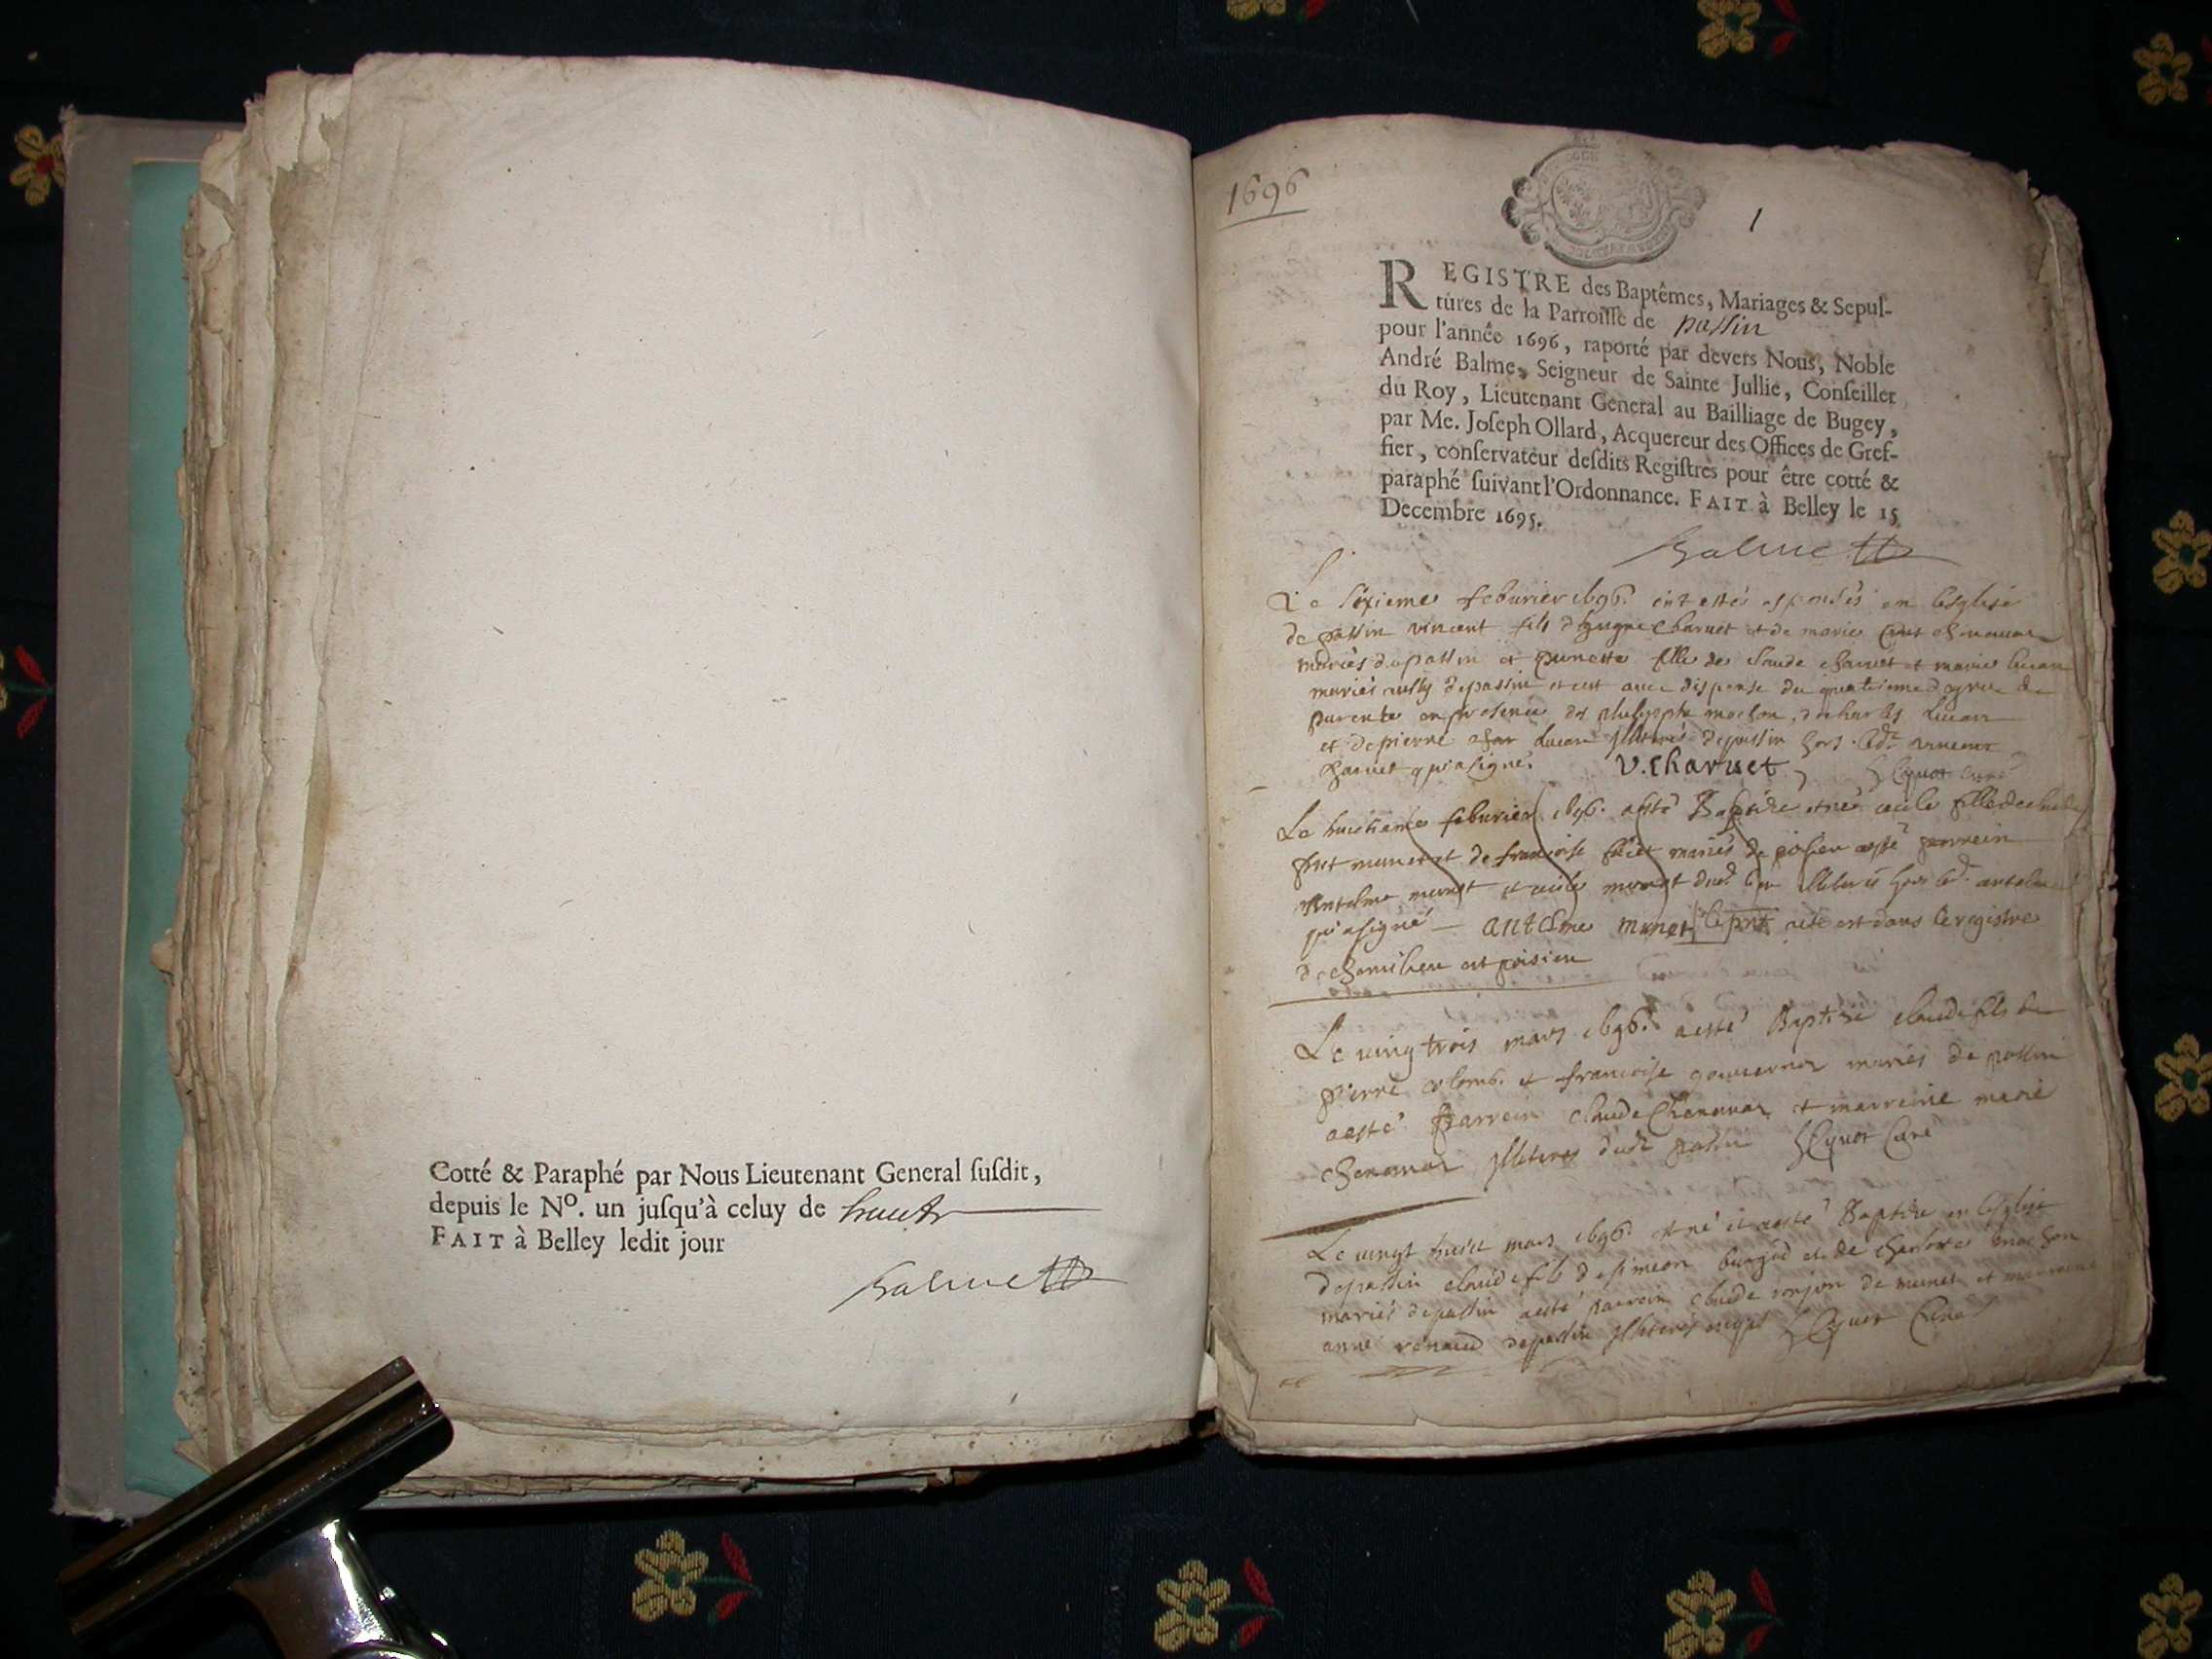 Cotté & Paraphé par Nous Lieutenant General ſuſdit,
depuis le No. un juſqu'à celuy de huict
FAIT à Belley ledit jour
Balme
1696
1
REGISTRE des Baptêmes, Mariages & Sepul-
tures de la Parroiſſe de paſſin
pour l'année 1696, raporté par devers Nous, Noble
André Balme, Seigneur de Sainte Jullie, Conſeiller
du Roy, Lieutenant General au Bailliage de Bugey,
par Me. Joſeph Ollard, Acquereur des Offices de Gref-
fier, conſervateur deſdits Regiſtres pour être cotté &
paraphé ſuivant l'Ordonnance. FAIT à Belley le 15
Decembre 1695.
Balme
Le ſixieme feburier 1696. ont estés espousés en l'esglise
de paſſin vincent fils d'hugue charuet et de marie
mariés de paſſin et fille de claude charuet et marie
mariés auſſy de paſſin et est avec dispense du quatrieme degree de
parente en presence de mochon, de charles
et de pierre de paſſin hors led. vincent
charuet qui a signé. V. Charuet curé
Le huictieme feburier 1696. a esté Baptisée et née cecile fille de claude
munet et de francoise mariés de poisieu a esté parrein
Antelme munet et cecile munet dud. lieu illiterés hors led. antelme
qui a signé antelme munet le pnt acte est dans le registre
de chemilieu et poisieu
Le vingtrois mars 1696. a esté Baptisé claude fils de
pierre colomb et francoise mariés de paſſin
a esté parrein claude chenavaz et marreine marie
chenavaz illiteres dudt paſſin curé
Le vingt huict mars 1696. et né et a esté Baptisé en l'esglise
de paſſin claude fils de simeon et de mochon
mariés de paſſin a esté parrein claude de munet et marreine
anne renaud de paſſin illiterés curé